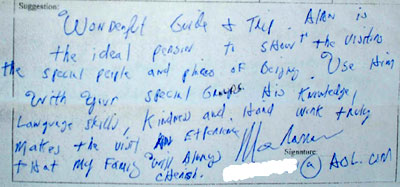 Suggestion:
Wonderful Guide & Trip. Alan is
the ideal person to show the visitors
the special people and places of Beijing. Use Him
with your special Groups. His Knowledge,
Language skills, Kindness and Hard work truly
makes the visit An Experience
that my Family will Always
cherish.
Signature:
@ AOL.COM